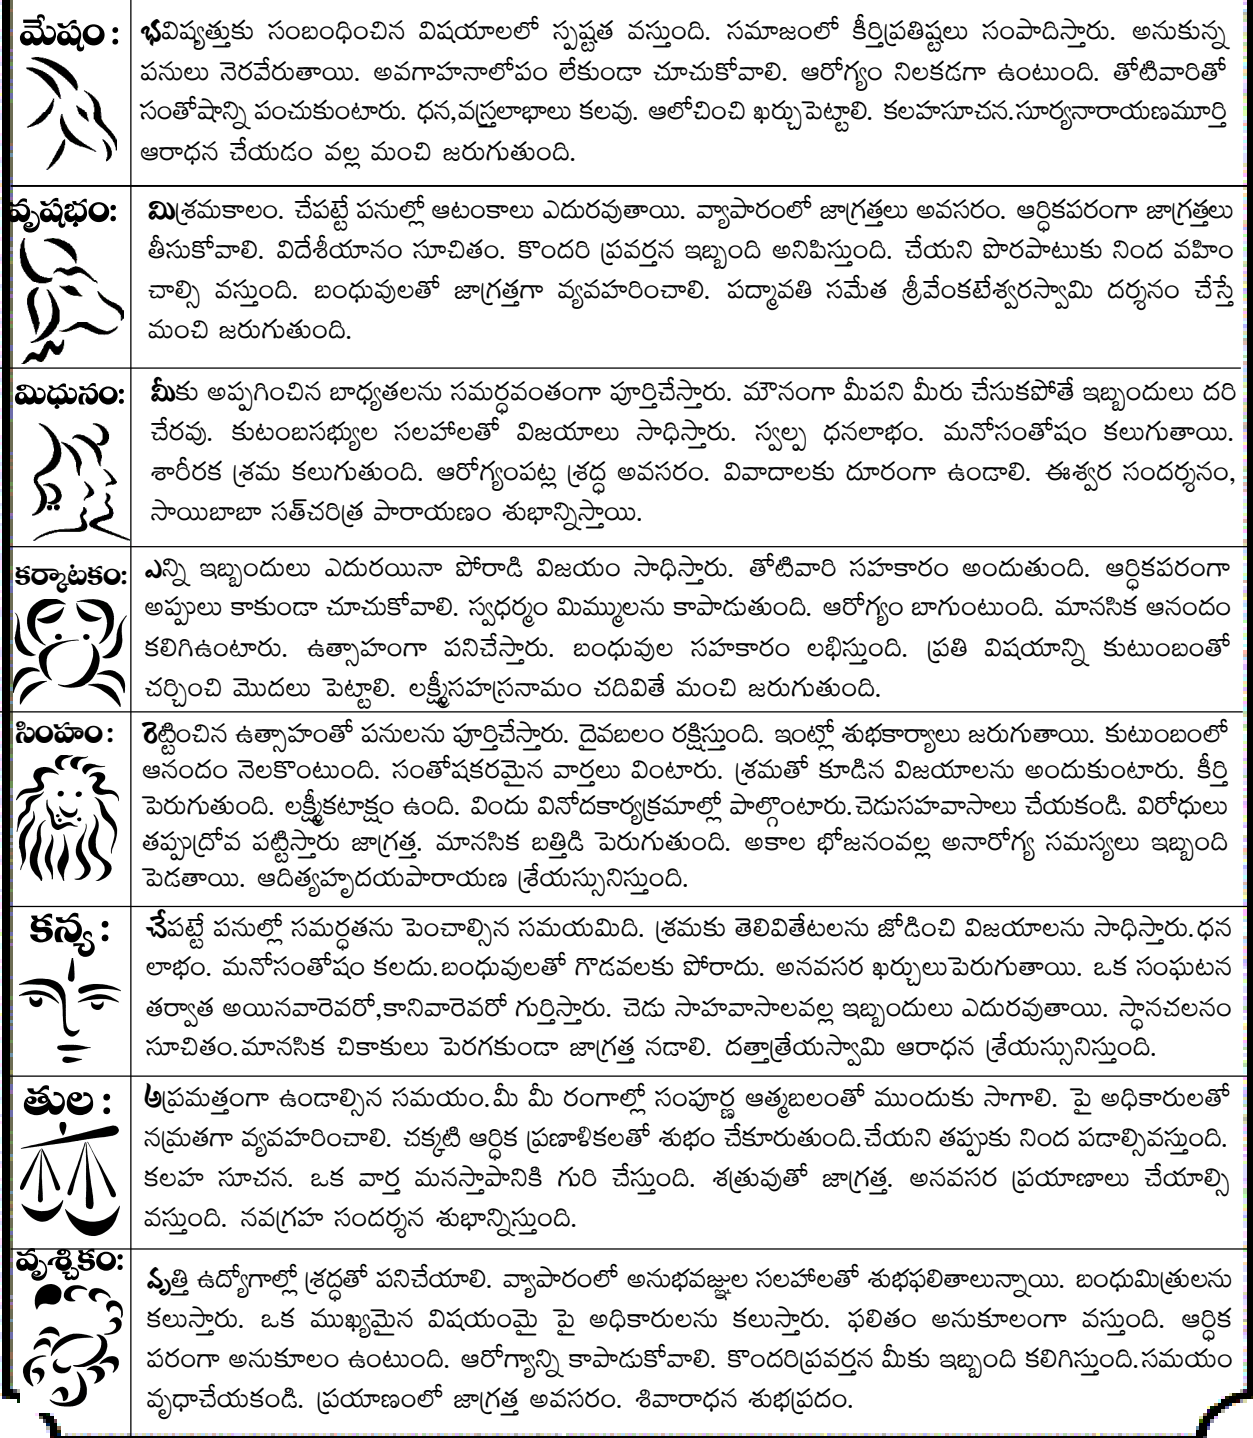 మేషం: భవిష్యత్తుకు సంబంధించిన విషయాలలో స్పష్టత వస్తుంది. సమాజంలో కీర్తిప్రతిష్టలు సంపాదిస్తారు. అనుకున్న
పనులు నెరవేరుతాయి. అవగాహనాలోపం లేకుండా చూచుకోవాలి. ఆరోగ్యం నిలకడగా ఉంటుంది. తోటివారితో
సంతోషాన్ని పంచుకుంటారు. ధన,వస్త్రలాభాలు కలవు. ఆలోచించి ఖర్చుపెట్టాలి. కలహసూచన.సూర్యనారాయణమూర్తి
ఆరాధన చేయడం వల్ల మంచి జరుగుతుంది.
వృషభం: మిశ్రమకాలం. చేపట్టే పనుల్లో ఆటంకాలు ఎదురవుతాయి. వ్యాపారంలో జాగ్రత్తలు అవసరం. ఆర్ధికపరంగా జాగ్రత్తలు
తీసుకోవాలి. విదేశీయానం సూచితం. కొందరి ప్రవర్తన ఇబ్బంది అనిపిస్తుంది. చేయని పొరపాటుకు నింద వహిం
చాల్సి వస్తుంది. బంధువులతో జాగ్రత్తగా వ్యవహరించాలి. పద్మావతి సమేత శ్రీవేంకటేశ్వరస్వామి దర్శనం చేస్తే
మంచి జరుగుతుంది.
మిధునం: మీకు అప్పగించిన బాధ్యతలను సమర్ధవంతంగా పూర్తిచేస్తారు. మౌనంగా మీపని మీరు చేసుకపోతే ఇబ్బందులు దరి
చేరవు. కుటంబసభ్యుల సలహాలతో విజయాలు సాధిస్తారు. స్వల్ప ధనలాభం. మనోసంతోషం కలుగుతాయి.
శారీరక శ్రమ కలుగుతుంది. ఆరోగ్యంపట్ల శ్రద్ధ అవసరం. వివాదాలకు దూరంగా ఉండాలి. ఈశ్వర సందర్శనం,
సాయిబాబా సత్‌చరిత్ర పారాయణం శుభాన్నిస్తాయి.
కర్కాటకం: ఎన్ని ఇబ్బందులు ఎదురయినా పోరాడి విజయం సాధిస్తారు. తోటివారి సహకారం అందుతుంది. ఆర్ధికపరంగా
అప్పులు కాకుండా చూచుకోవాలి. స్వధర్మం మిమ్ములను కాపాడుతుంది. ఆరోగ్యం బాగుంటుంది. మానసిక ఆనందం
కలిగిఉంటారు. ఉత్సాహంగా పనిచేస్తారు. బంధువుల సహకారం లభిస్తుంది. ప్రతి విషయాన్ని కుటుంబంతో
చర్చించి మొదలు పెట్టాలి. లక్ష్మీసహస్రనామం చదివితే మంచి జరుగుతుంది.
సింహం: రెట్టించిన ఉత్సాహంతో పనులను పూర్తిచేస్తారు. దైవబలం రక్షిస్తుంది. ఇంట్లో శుభకార్యాలు జరుగుతాయి. కుటుంబంలో
ఆనందం నెలకొంటుంది. సంతోషకరమైన వార్తలు వింటారు. శ్రమతో కూడిన విజయాలను అందుకుంటారు. కీర్తి
పెరుగుతుంది. లక్ష్మీకటాక్షం ఉంది. విందు వినోదకార్యక్రమాల్లో పాల్గొంటారు.చెడుసహవాసాలు చేయకండి. విరోధులు
తప్పుద్రోవ పట్టిస్తారు జాగ్రత్త. మానసిక బత్తిడి పెరుగుతుంది. అకాల భోజనంవల్ల అనారోగ్య సమస్యలు ఇబ్బంది
పెడతాయి. ఆదిత్యహృదయపారాయణ శ్రేయస్సునిస్తుంది.
కన్య: చేపట్టే పనుల్లో సమర్ధతను పెంచాల్సిన సమయమిది. శ్రమకు తెలివితేటలను జోడించి విజయాలను సాధిస్తారు.ధన
లాభం. మనోసంతోషం కలదు.బంధువులతో గొడవలకు పోరాదు. అనవసర ఖర్చులుపెరుగుతాయి. ఒక సంఘటన
తర్వాత అయినవారెవరో,కానివారెవరో గుర్తిస్తారు. చెడు సాహవాసాలవల్ల ఇబ్బందులు ఎదురవుతాయి. స్థానచలనం
సూచితం.మానసిక చికాకులు పెరగకుండా జాగ్రత్త నడాలి. దత్తాత్రేయస్వామి ఆరాధన శ్రేయస్సునిస్తుంది.
తుల: అప్రమత్తంగా ఉండాల్సిన సమయం.మీ మీ రంగాల్లో సంపూర్ణ ఆత్మబలంతో ముందుకు సాగాలి. పై అధికారులతో
నమ్రతగా వ్యవహరించాలి. చక్కటి ఆర్ధిక ప్రణాళికలతో శుభం చేకూరుతుంది.చేయని తప్పుకు నింద పడాల్సివస్తుంది.
కలహ సూచన. ఒక వార్త మనస్తాపానికి గురి చేస్తుంది. శత్రువుతో జాగ్రత్త. అనవసర ప్రయాణాలు చేయాల్సి
వస్తుంది. నవగ్రహ సందర్శన శుభాన్నిస్తుంది.
వృశ్చికం: వృత్తి ఉద్యోగాల్లో శ్రద్ధతో పనిచేయాలి. వ్యాపారంలో అనుభవజ్ఞుల సలహాలతో శుభఫలితాలున్నాయి. బంధుమిత్రులను
కలుస్తారు. ఒక ముఖ్యమైన విషయంమై పై అధికారులను కలుస్తారు. ఫలితం అనుకూలంగా వస్తుంది. ఆర్ధిక
పరంగా అనుకూలం ఉంటుంది. ఆరోగ్యాన్ని కాపాడుకోవాలి. కొందరిప్రవర్తన మీకు ఇబ్బంది కలిగిస్తుంది.సమయం
వృధాచేయకండి. ప్రయాణంలో జాగ్రత్త అవసరం. శివారాధన శుభప్రదం.